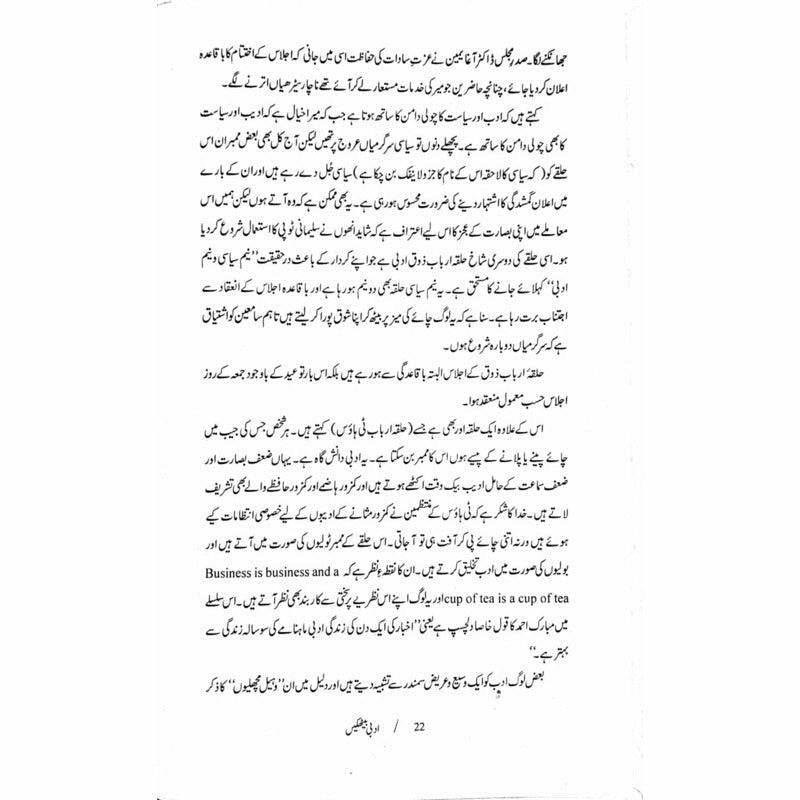 جھانکنے لگا۔ صدر مجلس ڈاکٹر آغا یمین نے عزتِ سادات کی حفاظت اسی میں جانی کہ اجلاس کے اختتام کا باقاعدہ
اعلان کر دیا جائے، چنانچہ حاضرین جو میر کی خدمات مستعار لے کر آئے تھے ناچار سیڑھیاں اترنے لگے۔
کہتے ہیں کہ ادب اور سیاست کا چولی دامن کا ساتھ ہوتا ہے جب کہ میرا خیال ہے کہ ادیب اور سیاست
کا بھی چولی دامن کا ساتھ ہے۔ پچھلے دنوں تو سیاسی سرگرمیاں عروج پر تھیں لیکن آج کل بھی بعض ممبران اس
حلقے کو (کہ سیاسی کا لاحقہ اس کے نام کا جزو لاینفک بن چکا ہے) سیاسی جُل دے رہے ہیں اور ان کے بارے
میں اعلان گمشدگی کا اشتہار دینے کی ضرورت محسوس ہو رہی ہے۔ یہ بھی ممکن ہے کہ وہ آتے ہوں لیکن ہمیں اس
معاملے میں اپنی بصارت کے عجز کا اس لیے اعتراف ہے کہ شاید انھوں نے سلیمانی ٹوپی کا استعمال شروع کر دیا
ہو۔ اسی حلقے کی دوسری شاخ حلقہ ارباب ذوق ادبی ہے جو اپنے کردار کے باعث در حقیقت ’’نیم سیاسی و نیم
ادبی‘‘ کہلائے جانے کا مستحق ہے۔ یہ نیم سیاسی حلقہ بھی دو نیم ہو رہا ہے اور باقاعدہ اجلاس کے انعقاد سے
اجتناب برت رہا ہے۔ سنا ہے کہ یہ لوگ چائے کی میز پر بیٹھ کر اپنا شوق پورا کر لیتے ہیں تاہم سامعین کو اشتیاق
ہے کہ سرگرمیاں دوبارہ شروع ہوں۔
حلقۂ ارباب ذوق کے اجلاس البتہ باقاعدگی سے ہو رہے ہیں بلکہ اس بار تو عید کے باوجود جمعہ کے روز
اجلاس حسب معمول منعقد ہوا۔
اس کے علاوہ ایک حلقہ اور بھی ہے جسے (حلقہ ارباب ٹی ہاؤس) کہتے ہیں۔ ہر شخص جس کی جیب میں
چائے پینے یا پلانے کے پیسے ہوں اس کا ممبر بن سکتا ہے۔ یہ ادبی دانش گاہ ہے۔ یہاں ضعف بصارت اور
ضعف سماعت کے حامل ادیب بیک وقت اکٹھے ہوتے ہیں اور کمزور ہاضمے اور کمزور حافظے والے بھی تشریف
لاتے ہیں۔ خدا کا شکر ہے کہ ٹی ہاؤس کے منتظمین نے کمزور مثانے کے ادیبوں کے لیے خصوصی انتظامات کیے
ہوئے ہیں ورنہ اتنی چائے پی کر آفت ہی تو آ جاتی۔ اس حلقے کے ممبر ٹولیوں کی صورت میں آتے ہیں اور
بولیوں کی صورت میں ادب تخلیق کرتے ہیں۔ ان کا نقطۂ نظر ہے کہ Business is business and a
cup of tea is a cup of tea اور یہ لوگ اپنے اس نظریے پر سختی سے کاربند بھی نظر آتے ہیں۔ اس سلسلے
میں مبارک احمد کا قول خاصا دلچسپ ہے یعنی ’’اخبار کی ایک دن کی زندگی ادبی ماہنامے کی سو سالہ زندگی سے
بہتر ہے۔‘‘
بعض لوگ ادب کو ایک وسیع و عریض سمندر سے تشبیہ دیتے ہیں اور دلیل میں ان ’’وہیل مچھلیوں‘‘ کا ذکر
ادبی بیٹھکیں / 22